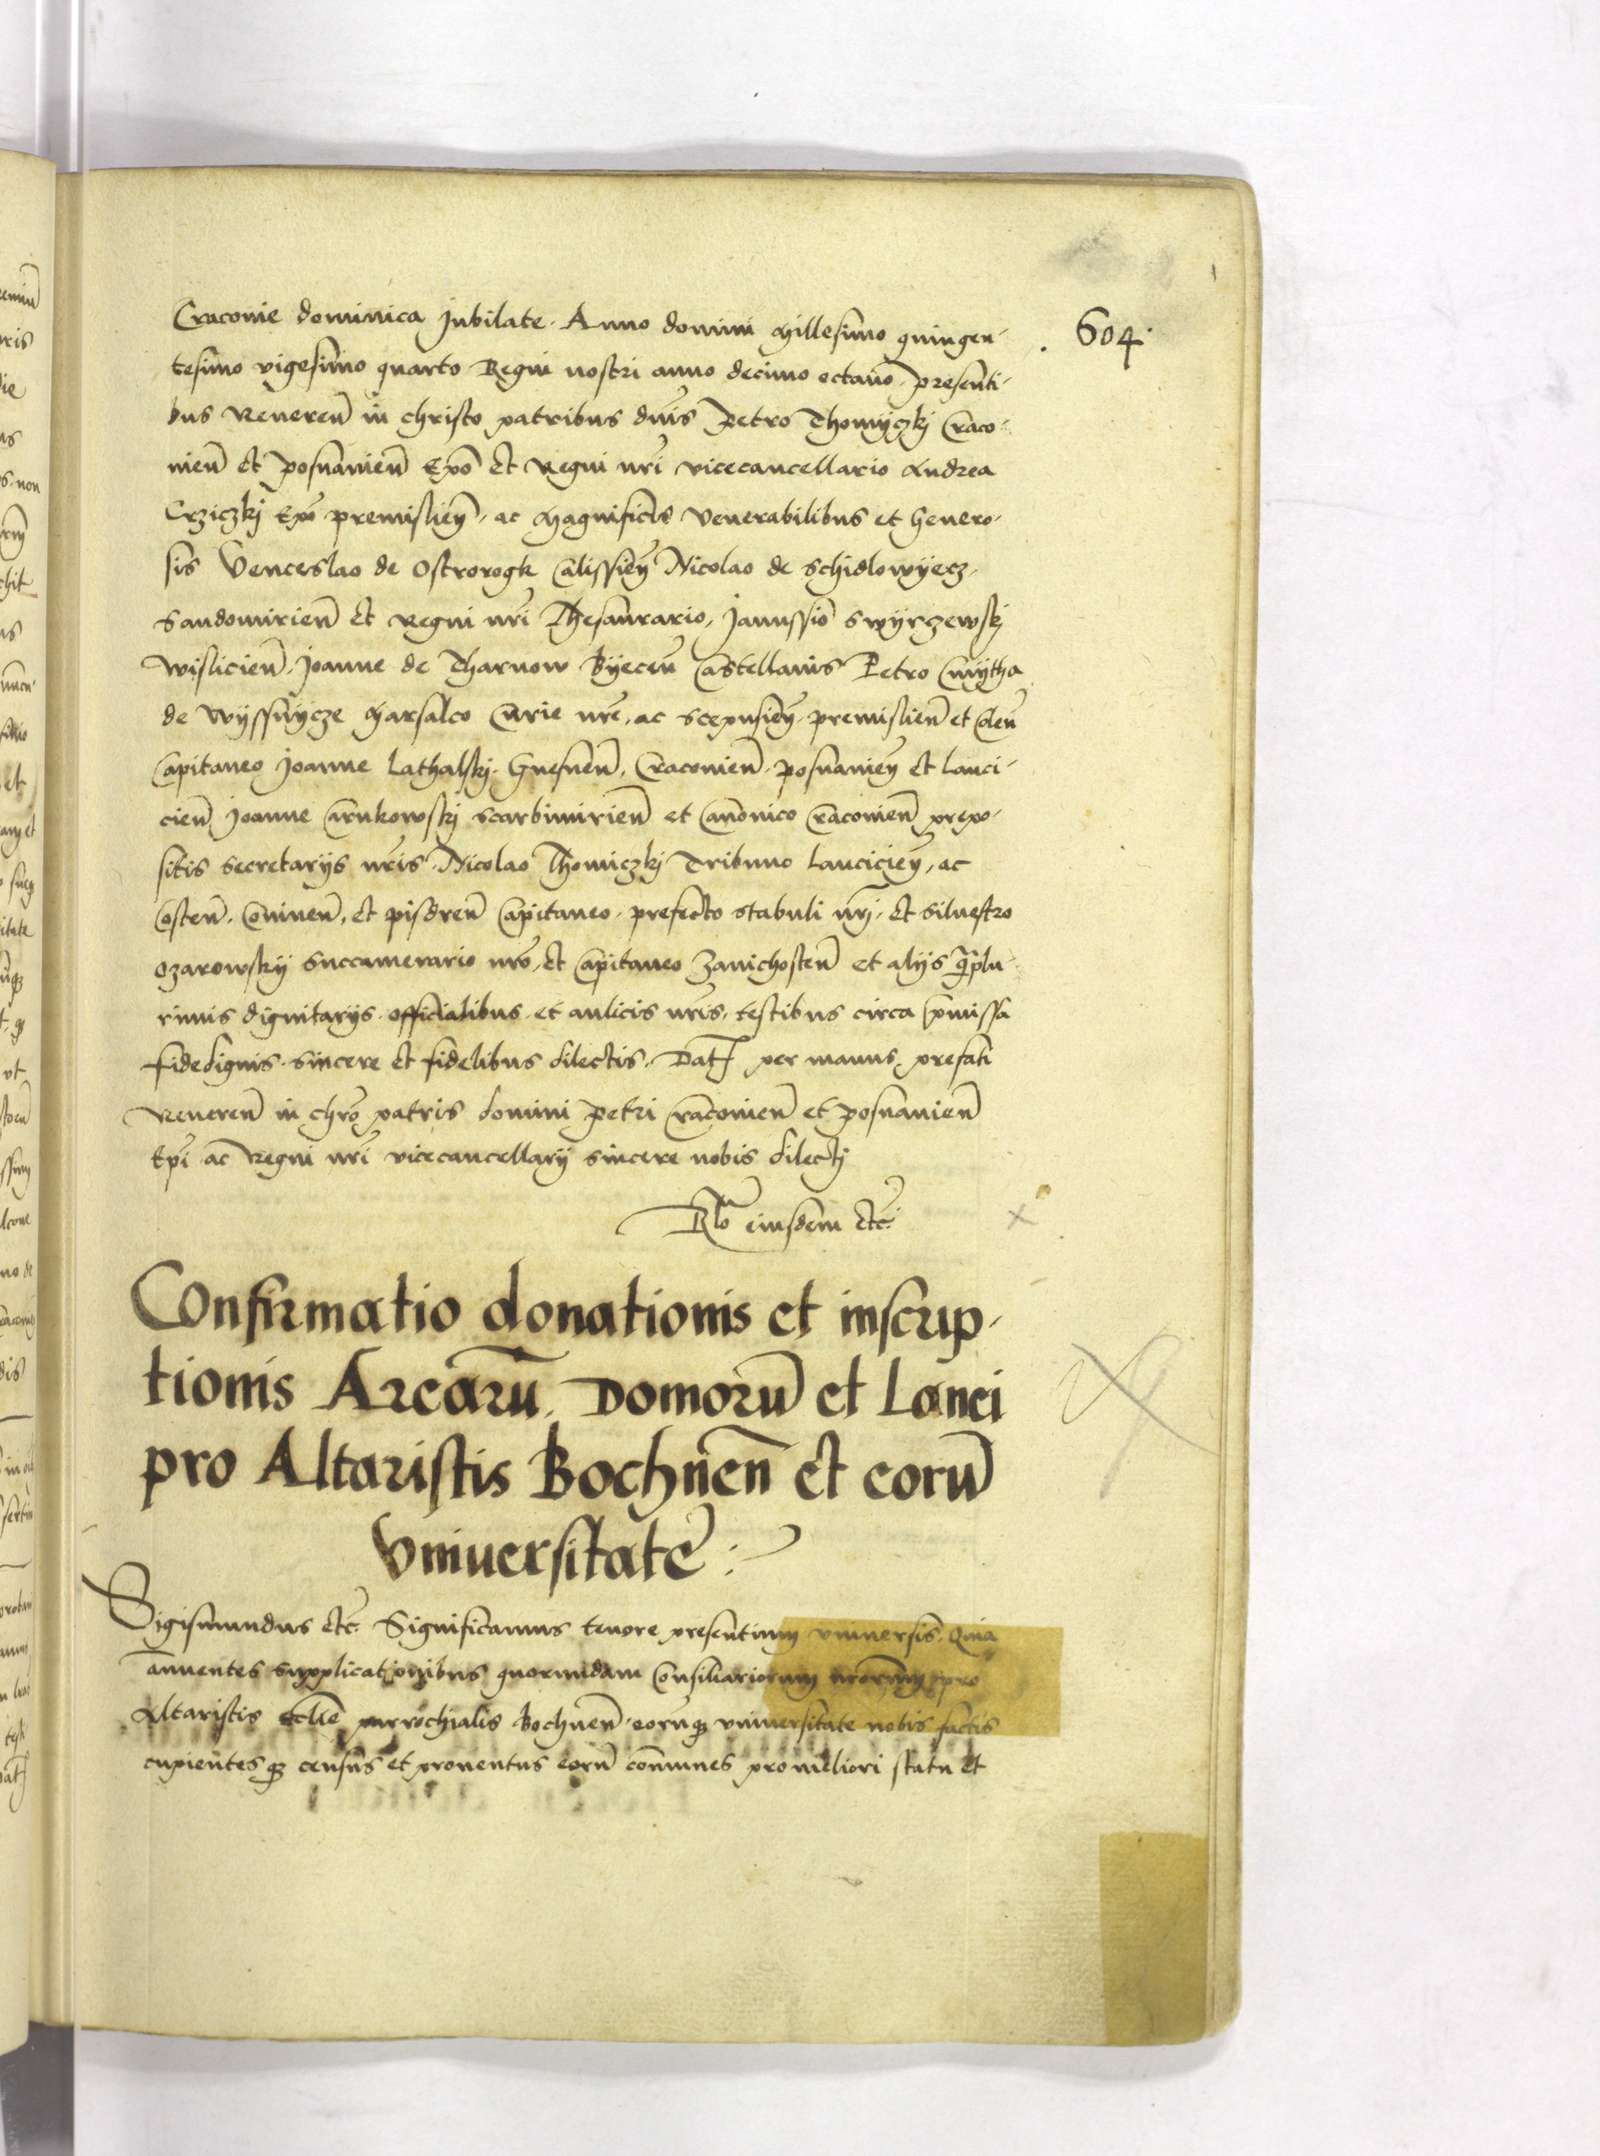 604.
Cracovie dominica Jubilate. Anno domini Millesimo quingen-
tesimo vigesimo quarto Regni nostri anno decimo octavo. presenti-
bus Reveren̄ in christo patribus dn̄is Petro Thomyczkj Craco-
vien̄ et posnanien̄ Ep̄o et Regni nr̄i vicecancellario Andrea
Crziczkj Ep̄o premislien̄, ac Magnificis Venerabilibus et Genero-
sis Venceslao de Ostrorogk Calissien̄ Nicolao de Schidlowyecz,
Sandomirien̄ et Regni nr̄i Thesaurario, Janussio Swyrzewskj
wislicien̄, Joanne de Tharnow Byecen̄ Castellanis Petro Cmytha
de wyssnycze Marsalco Curie nr̄e, ac Scepusien̄, premislien̄ et Colen̄
Capitaneo Joanne Lathalskj. Gnesnen̄, Cracovien̄. posnanien̄ et Lanci-
cien̄ Joanne Carnkowskj Scarbimirien̄ et Canonico Cracovien̄ prepo-
sitis Secretarijs nr̄is. Nicolao Thomiczkj Tribuno Lancicien̄, ac
Costen̄. Coninen̄, et pisdren̄ Capitaneo. prefecto stabuli nr̄j. et Silvestro
Ozarowskij Succamerario nr̄o, et Capitaneo Zavichosten̄ et alijs q̄mplu-
rimis dignitarijs. officialibus. et aulicis nr̄is. testibus circa p̄missa
fidedignis. sincere et fidelibus dilectis. Dat̄ per manus prefati
Reveren̄ in chr̄o patris domini petri Cracovien̄ et posnanien̄
Ep̄i ac Regni nr̄i vicecancellarij sincere nobis dilectj
Rl̄o eiusdem etc̄.
Confirmatio donationis et inscrip-
tionis Arcarū. Domorū et Lanei
pro Altaristis Bochnen̄ et eorū
Vniuersitate:
Sigismundus etc̄. Significamus tenore presentium vniuersis. Quia
annuentes supplicationibus quorundam Consiliariorum nr̄orum pro
Altaristis eccl̄ie parrochialis Bochnen̄. eorumq̄ vniuersitate nobis factis
cupientesq̄ census et proventus eorū com̄unes pro meliori statu et